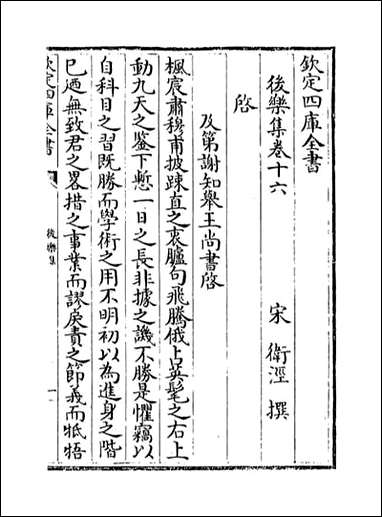 欽定四庫全書
後樂集卷十六
宋 衛涇 撰
啓
及第謝知舉王尚書啓
楓宸肅穆甫披踈直之衷臚句飛騰俄占英髦之右上
動九天之鑒下慙一日之長非據之譏不勝是懼竊以
自科目之習既勝而學術之用不明初以為進身之階
已迺無致君之畧措之事業而謬戾責之節義而牴牾
欽定四庫全書
後樂集
一